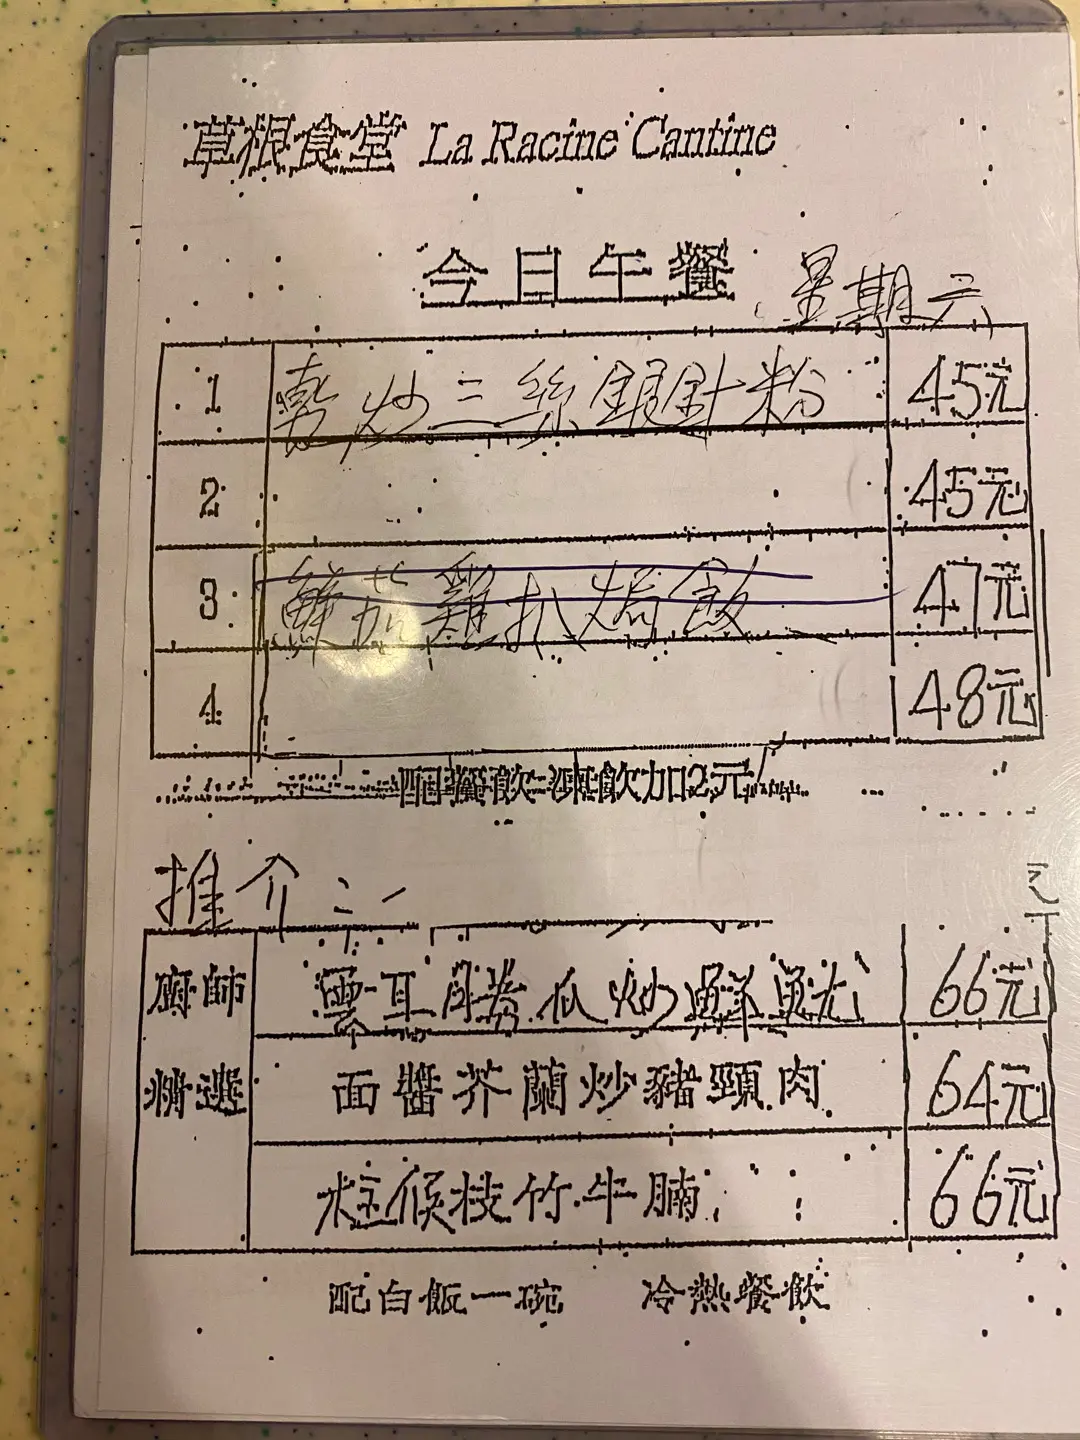 草根食堂 La Racine Cantine
今日午餐 星期六
1 乾炒三絲銀針粉 45元
2 45元
3 鮮茄雞扒焗飯 47元
4 48元
配餐飲 凍飲加2元
推介:
廚師 雲耳勝瓜炒鮮魷 66元
精選 面醬芥蘭炒豬頸肉 64元
柱候枝竹牛腩 66元
配白飯一碗 冷熱餐飲